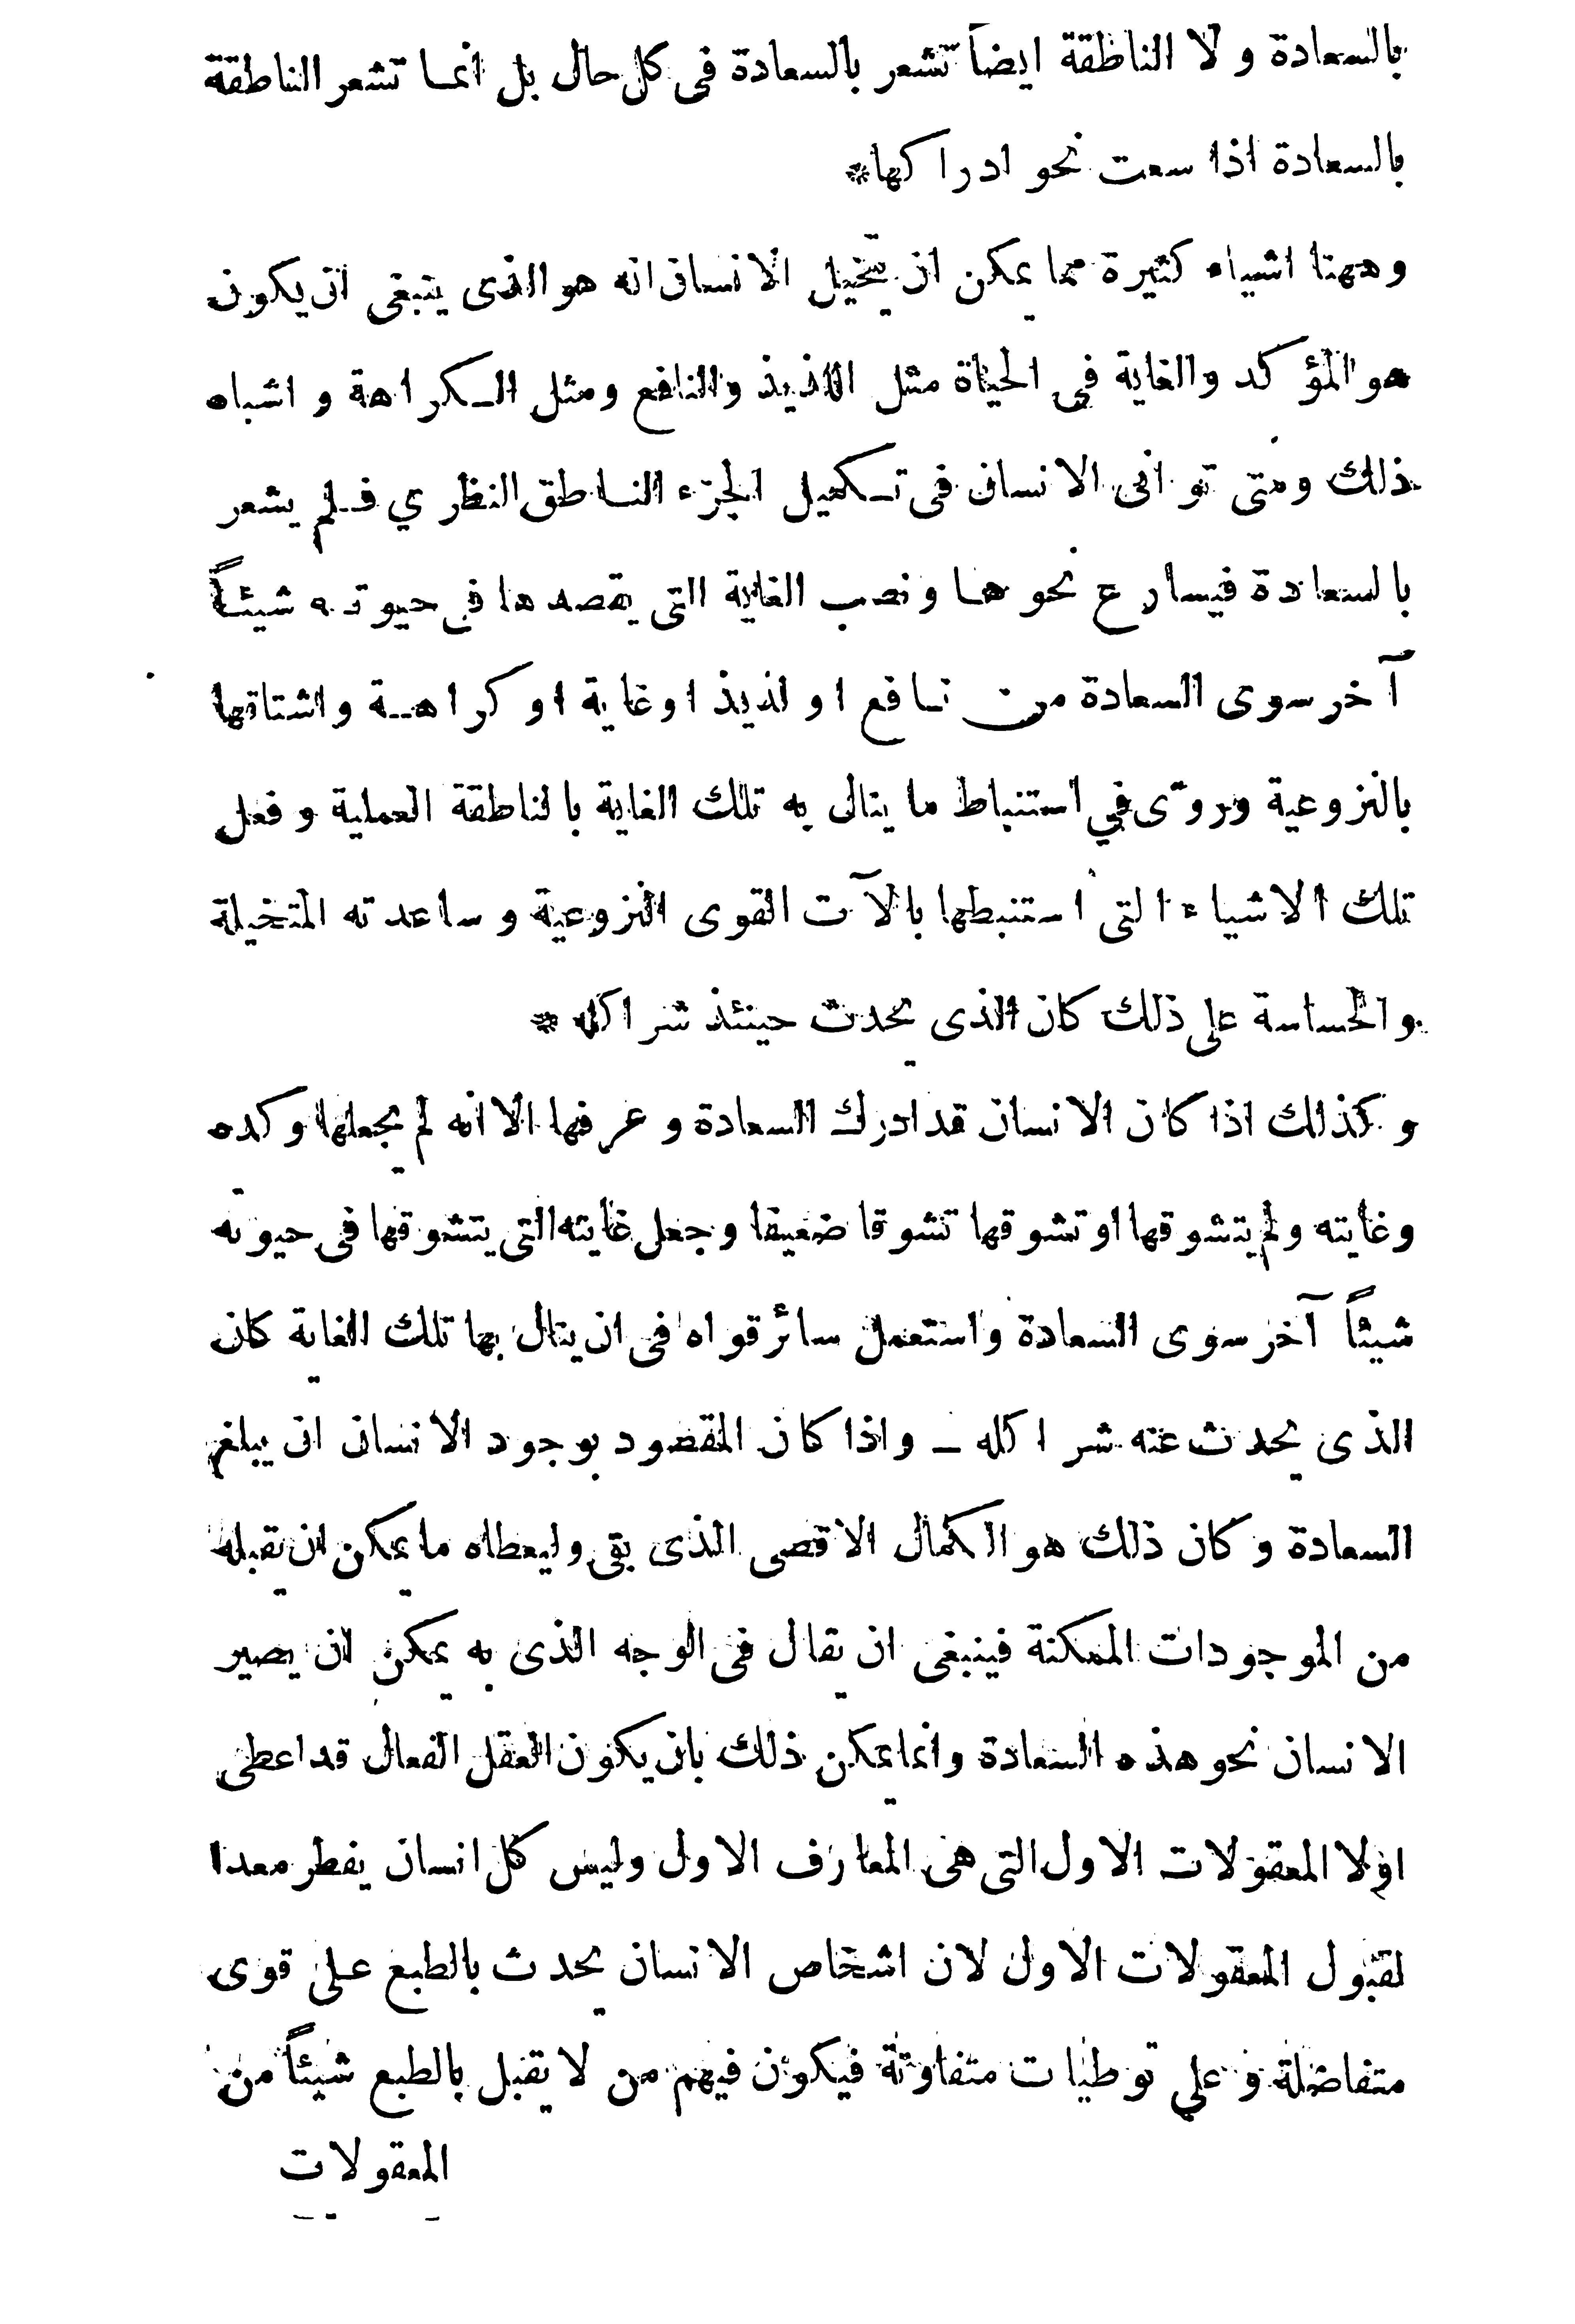 بالسعادة و لا الناطقة ايضاً تشعر بالسعادة فى كل حال بل انما تشعر الناطقة
بالسعادة اذا سعت نحو ادراكها*
وههنا اشياء كثيرة مما يمكن ان يتخيل الانسان انه هو الذى ينبغى ان يكون
هو المؤكد والغاية فى الحياة مثل اللذيذ والنافع ومثل الكراهة و اشباه
ذلك ومتى توانى الانسان فى تكميل الجزء الناطق النظري فلم يشعر
بالسعادة فيسارع نحوها ونصب الغاية التى يقصدها فى حيوته شيئاً
آخر سوى السعادة من نافع او لذيذ او غاية او كراهة واشتاقها
بالنزوعية وروّى في استنباط ما ينال به تلك الغاية بالناطقة العملية و فعل
تلك الاشياء التى استنبطها بالآت القوى النزوعية و ساعدته المتخيلة
والحساسة على ذلك كان الذى يحدث حينئذ شراكله *
و كذلك اذا كان الانسان قد ادرك السعادة و عرفها الا انه لم يجعلها وكده
وغايته ولم يتشوقها او تشوقها تشوقا ضعيفا وجعل غايته التى يتشوقها فى حيوته
شيئاً آخر سوى السعادة واستعمل سائر قواه فى ان ينال بها تلك الغاية كان
الذى يحدث عنه شراكله ــ واذا كان المقصود بوجود الانسان ان يبلغ
السعادة وكان ذلك هو الكمال الاقصى الذى بقى وليعطاه ما يمكن ان يقبله
من الموجودات الممكنة فينبغى ان يقال فى الوجه الذى به يمكن ان يصير
الانسان نحو هذه السعادة وانما يمكن ذلك بان يكون العقل الفعال قد اعطى
اولا المعقولات الاول التى هى المعارف الاول وليس كل انسان يفطر معدا
لقبول المعقولات الاول لان اشخاص الانسان يحدث بالطبع على قوى
متفاضلة و على توطيات متفاوتة فيكون فيهم من لا يقبل بالطبع شيئاً من
المعقولات